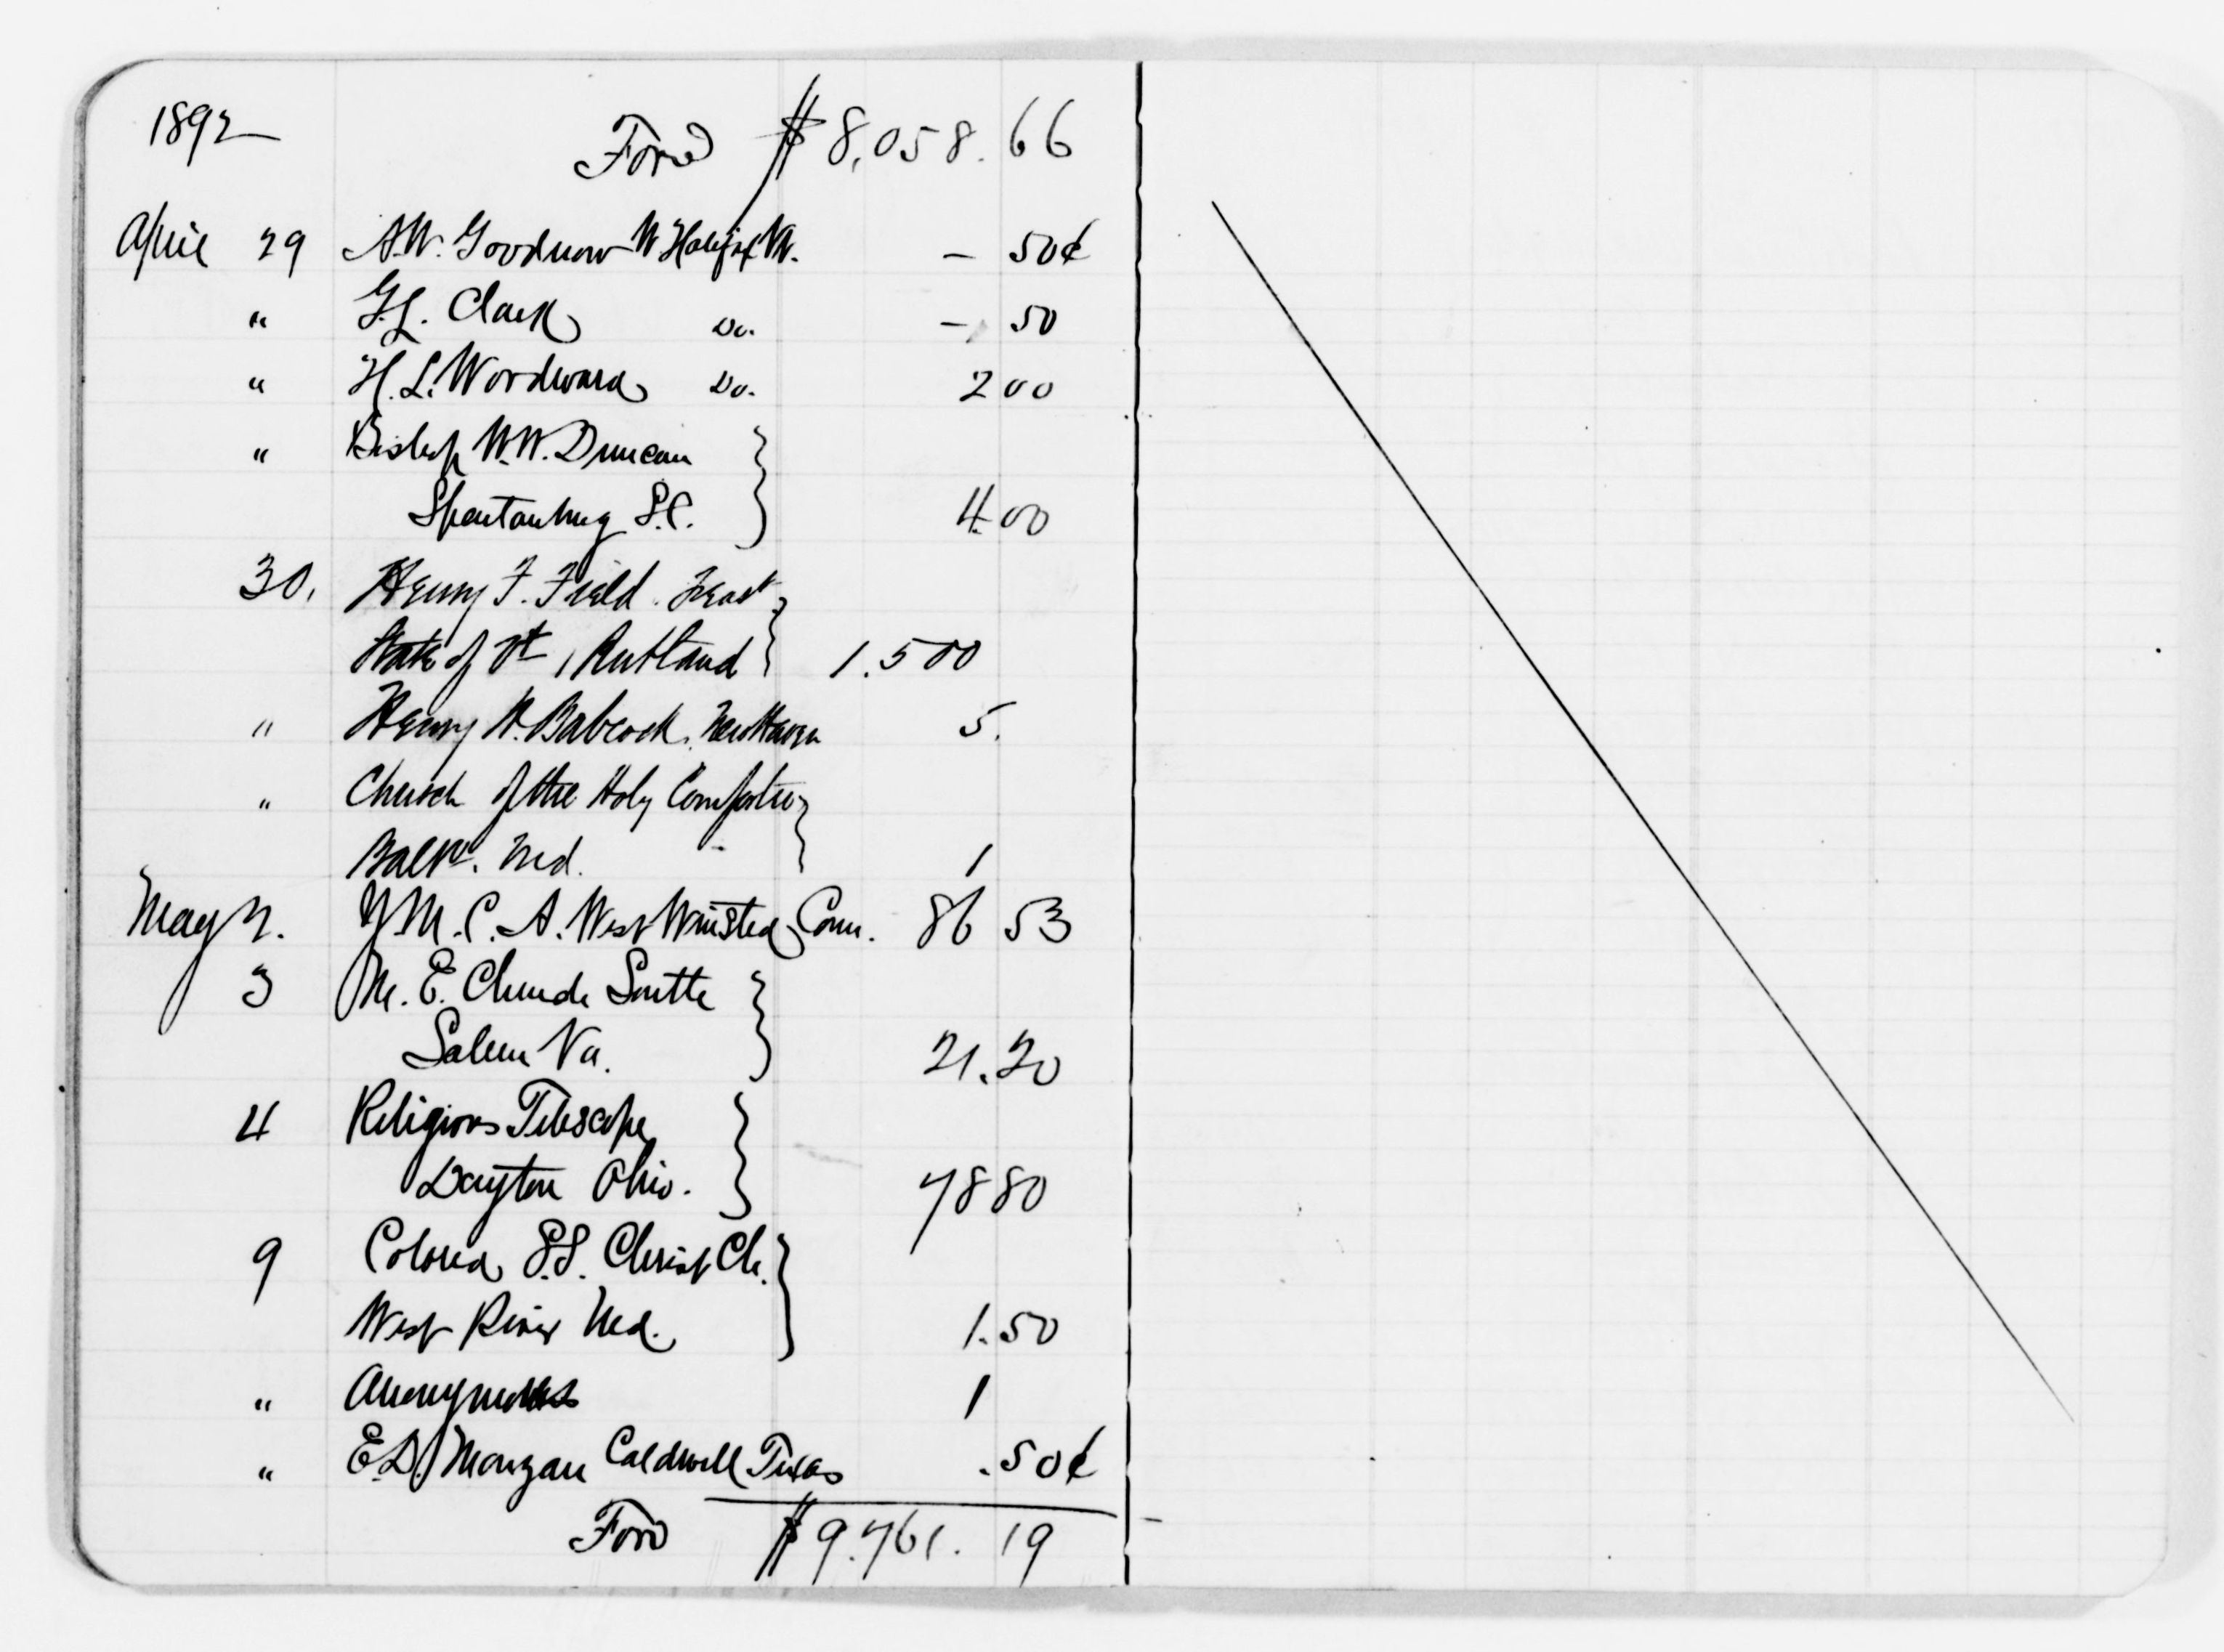 1892
Ford $8,058.66
April 29 A.W. Goodnow W Halifax Vt. - 50¢
" G.L. Clark Do. - 50
" H.L. Woodward Do. 2 00
" Bishop W.W. Duncan
Spartanburg S.C. 4.00
30. Henry F. Field. Treas
State of Vt, Rutland 1.500
" Henry H. Babcock. New Haven 5.
" Church of the Holy Comforter
Balto. Md. 1
May 2. Y.M.C.A. West Winsted, Conn. 86 53
3 M. E. Church South
Salem Va. 21.20
4 Religious Telescope
Dayton Ohio. 78 80
9 Colored S.S. Christ Ch.
West River Md. 1.50
" Anonymous 1
" E.D. Morgan Caldwell Texas .50¢
Ford $9.761.19